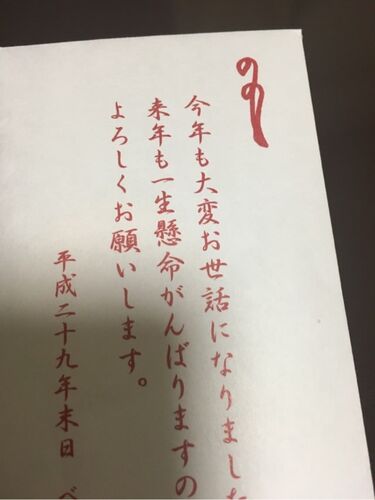 今年も大変お世話になりました
来年も一生懸命がんばりますの
よろしくお願いします。
平成二十九年末日